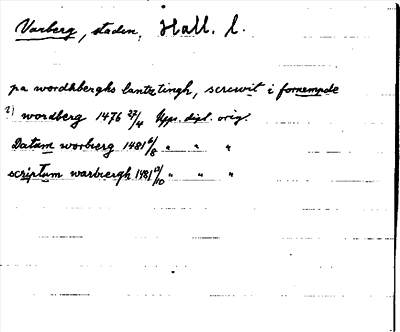 Varberg, staden, Hall. l.
pa wordhberghs lantztingh, screwit i fornempde
wordberg 1476 27/4 Upps. dipl. orig.
Datum worbierg 1481 6/8 " " "
scriptum warbiergh 1481 /10 " " "